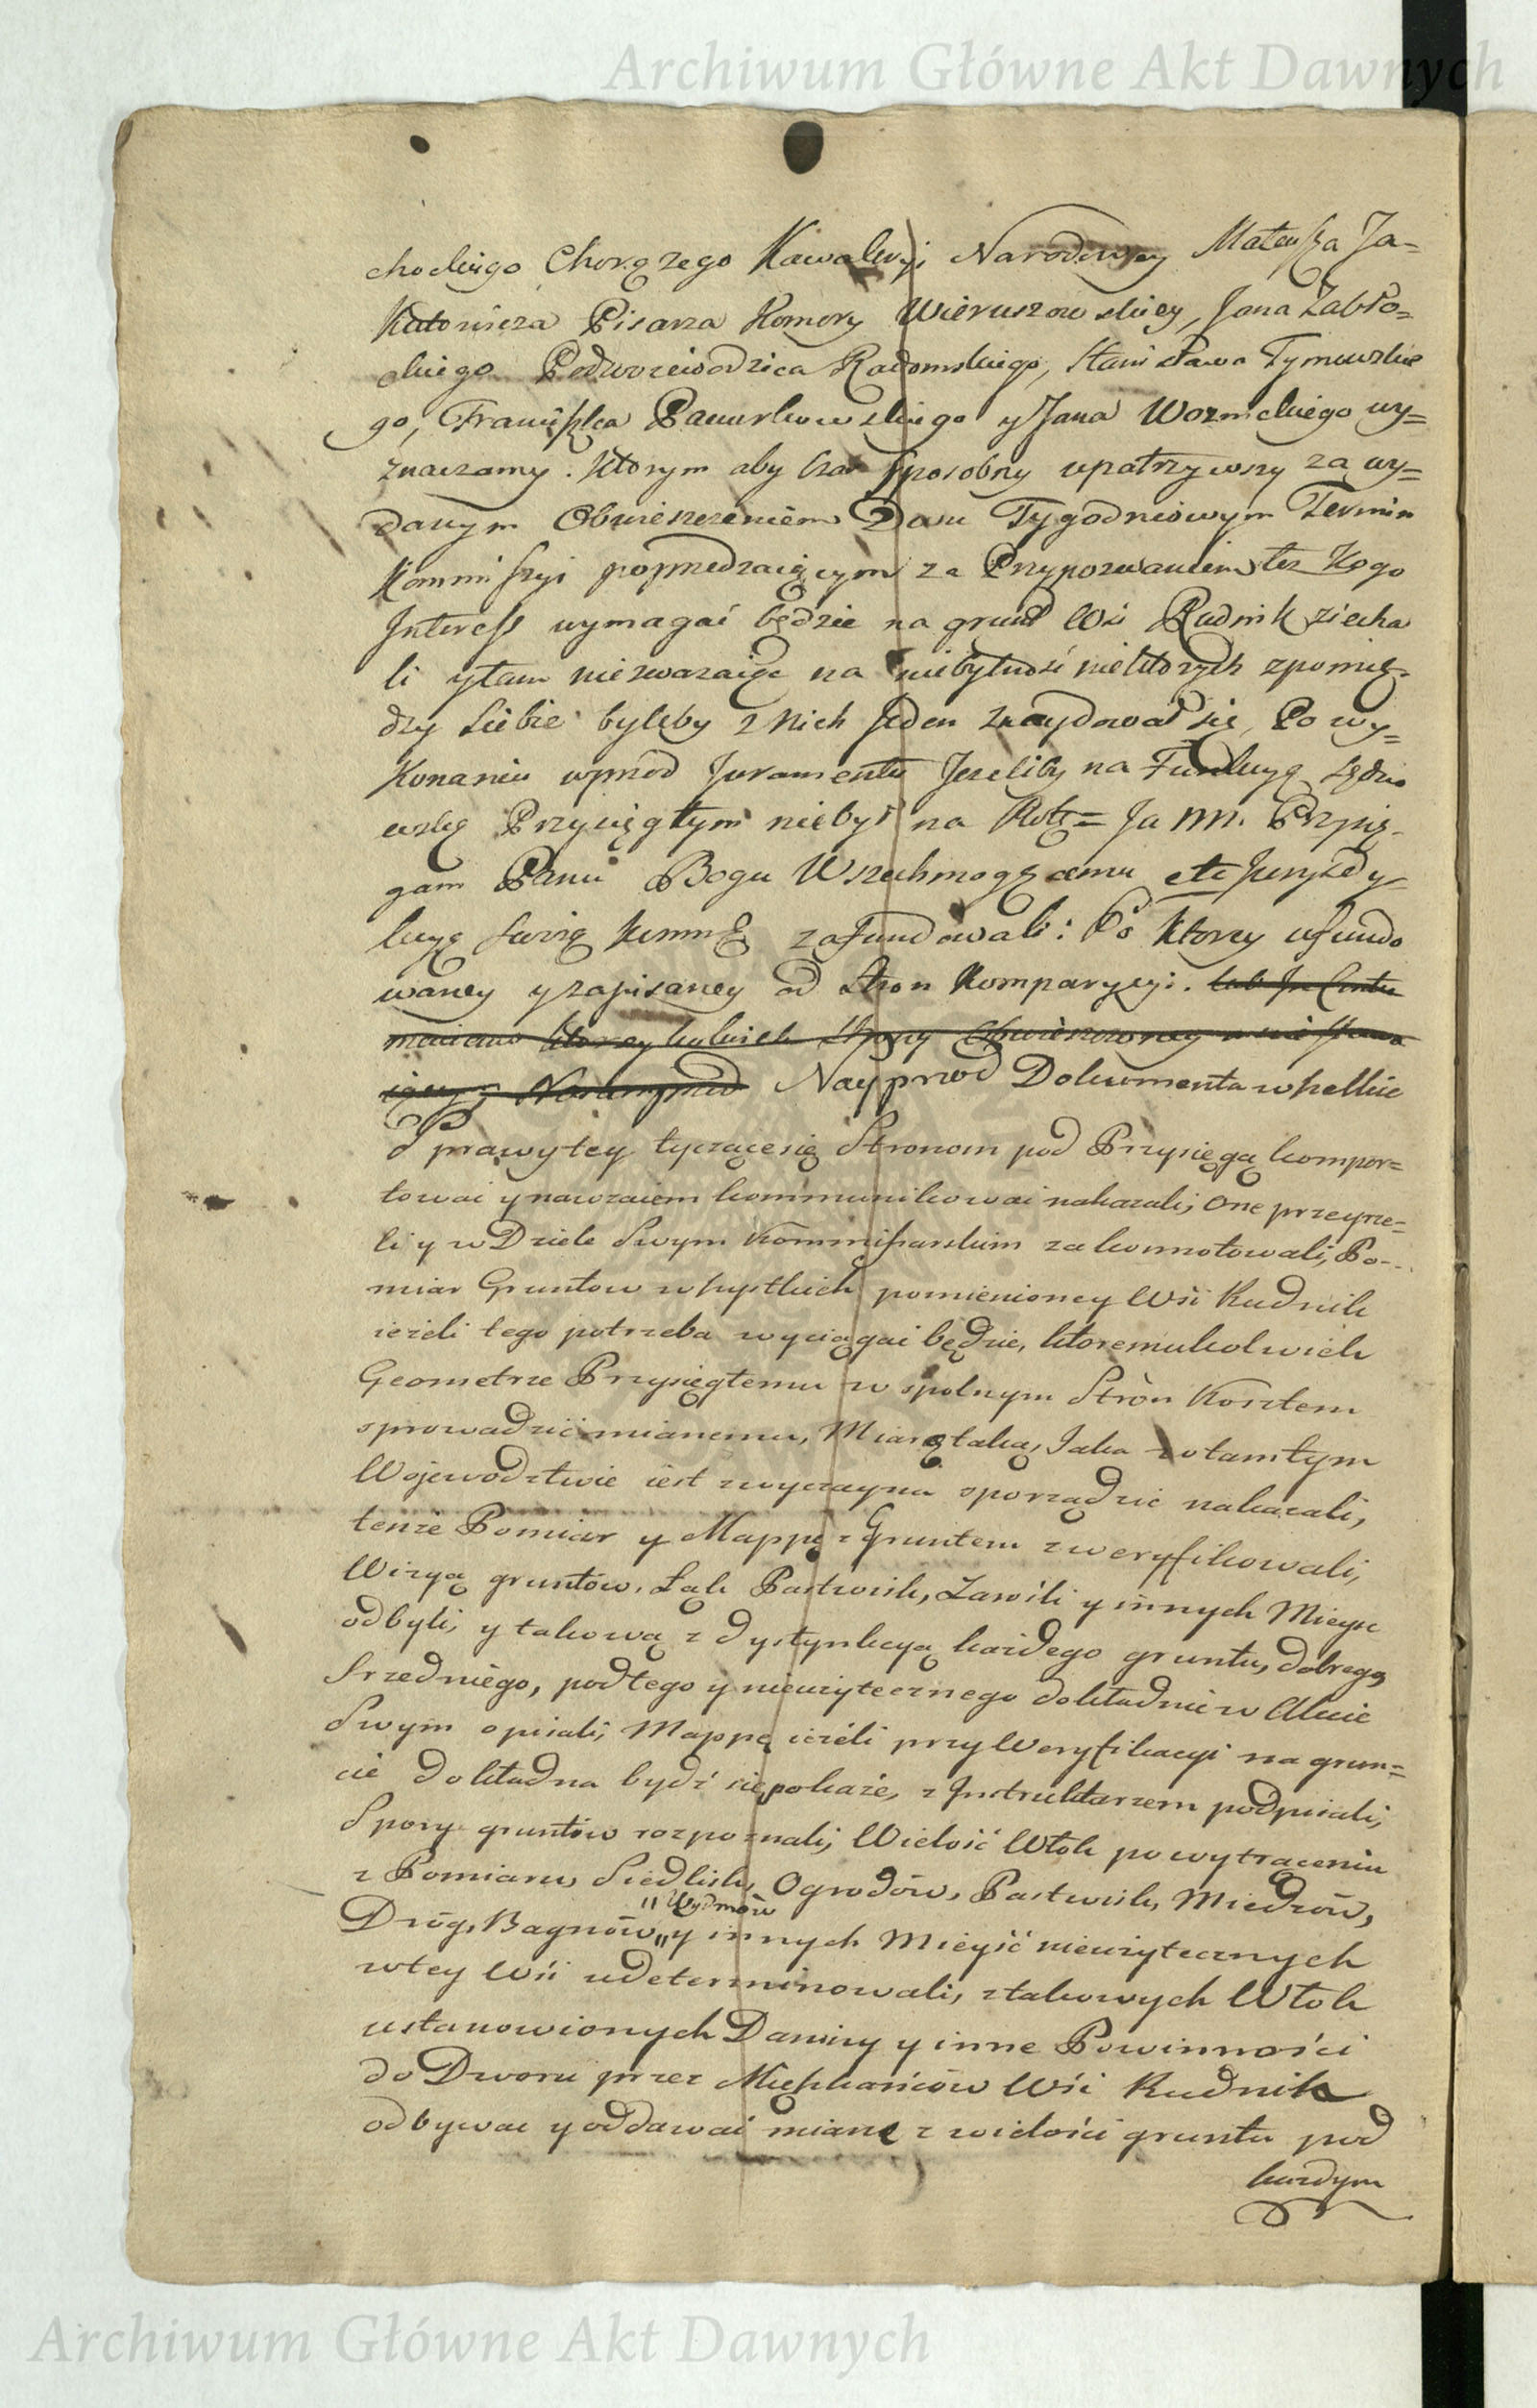 Archiwum Główne Akt Dawnych
chockiego Chorązego Kawaleryi Narodowey Mateusza Ja=
Kutowicza Pisarza Komory Wieruszowskiey, Jana Zabło=
ckiego Podwoiewodzica Radomskiego, Stanisława Tymowskie
go, Franciszka Paciorkowskiego y Jana Woznickiego wy=
znaczamy. Ktorym aby czas sposobny upatrzywszy za wy=
danym Obwieszczeniem Dwu Tygodniowym Termin
Kommissyi poprzedzaiącym za Przypozwaniem tez Kogo
Interess wymagać będzie na grunt Wsi Rudnik ziecha
li y tam niezwazaiąc na niebytność niektorych zpomię=
dzy Siebie byleby z Nich Jeden znaydował się, Po wy=
Konaniu wprzod Juramentu Jezeliby na Funkcyą Sędzio
wską Przysięgłym niebył na Rotę = Ja NN. Przysię=
gam Panu Bogu Wszechmogącemu etc Juryzdy=
kcyą swoią Kommą zafundowali: Po Ktorey ufundo
waney y zapisaney od Stron Komparycyi. lub In Contu
maciam ktoreykolwiek Strony Obwieszczoney a nie stawa
iącey; Nayprzod Dokumenta wszelkie
Sprawy tey tyczące się Stronom pod Przysięgą kompor=
tować y nawzaiem kommunikować nakazali; One przeyrze=
li y w Dziele Swym Kommissarskim zakonnotowali; Po--
miar Gruntow wszystkich pomienioney Wsi Rudnik
ieżeli tego potrzeba wyciągać będzie, ktoremukolwiek
Geometrze Przysięgłemu wspolnym Strón Kosztem
sprowadzić mianemu, Miarą taką, Jaka w tamtym
Wojewodztwie iest zwyczayna sporządzić nakazali,
tenże Pomiar y Mappę z Gruntem zweryfikowali,
Wizyą gruntów, Łąk Pastwisk, Zarośli y innych Mieysc
odbyli, y takową z dystynkcyą każdego gruntu, dobrego,
Srzedniego, podłego y nieużytecznego dokładnie w Akcie
Swym opisali; Mappę ieżeli przy Weryfikacyi na grun=
cie dokładna bydź się pokaże, z Instruktarzem podpisali;
Spory gruntów rozpoznali; Wielość Włok po wytrąceniu
z Pomiaru, Siedlisk, Ogrodów, Pastwisk, Miedzów,
" Wydmów
Dróg, Bagnów" y innych Mieysć nieużytecznych
w tey Wsi udeterminowali, z takowych Włok
ustanowionych Daniny y inne Powinności
do Dworu przez Mieszkańców Wsi Rudnik
odbywać y oddawać miane z wielości gruntu pod
każdym
Archiwum Główne Akt Dawnych